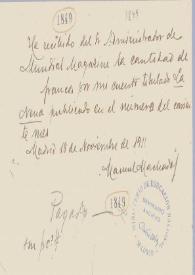 1869
1869
He recibido del Sr. Administrador de
Mundial Magazine la cantidad de
francos por mi cuento titulado La
Nena publicado en el número del corrien
te mes
Madrid 18 Noviembre de 1911
Manuel Machado
Pagado
1869